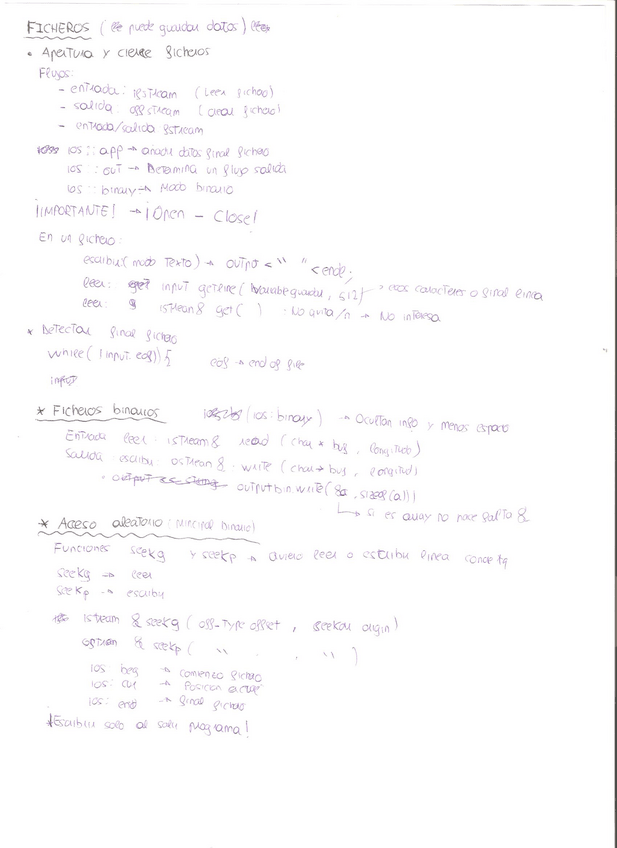 FICHEROS ( puede guardar datos)
• Apertura y cierre ficheros
Flujos:
- entrada: ifstream (Leer fichero)
- salida: ofstream (crear fichero)
- entrada/salida fstream
ios::app → anadir datos final fichero
ios::out → Determina un flujo salida
ios::binary → Modo binario
¡IMPORTANTE! → ¡Open - Close!
En un fichero:
escribir (modo texto) → output < " " < endl;
leer: input getline (Variable guardar, 512) → caracteres o final linea
leer: istream & get( ) : No quita /n → No interesa
* Detectar final fichero
while( ! input. eof)) { eof → end of file
input
* Ficheros binarios (ios:binary) → Ocultan info y menos espacio
Entrada leer: istream & read (char * buf, longitud)
Salida escribir: ostream & write (char * buf, longitud)
• output bin write( &a, sizeof(a))
↳ si es array no hace falta &
* Acceso aleatorio (principal binario)
Funciones seekg y seekp → quiero leer o escribir linea
seekg → leer
seekp → escribir
istream & seekg (off-type offset, seekdir origin)
& seekp ( " , " )
ios beg → comienzo fichero
ios: cur → Posicion actual
ios: end → final fichero
¡Escribir solo al salir programa!